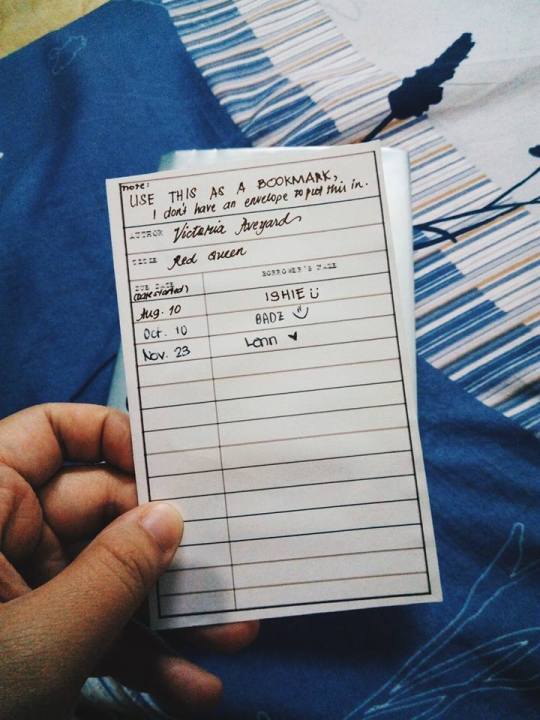 note:
USE THIS AS A BOOKMARK,
I don't have an envelope to put this in.
AUTHOR Victoria Aveyard
TITLE Red Queen
DUE DATE BORROWER'S NAME
(date started)
Aug. 10 ISHIE ü
Oct. 10 BADZ
Nov. 23 Lenn ♥